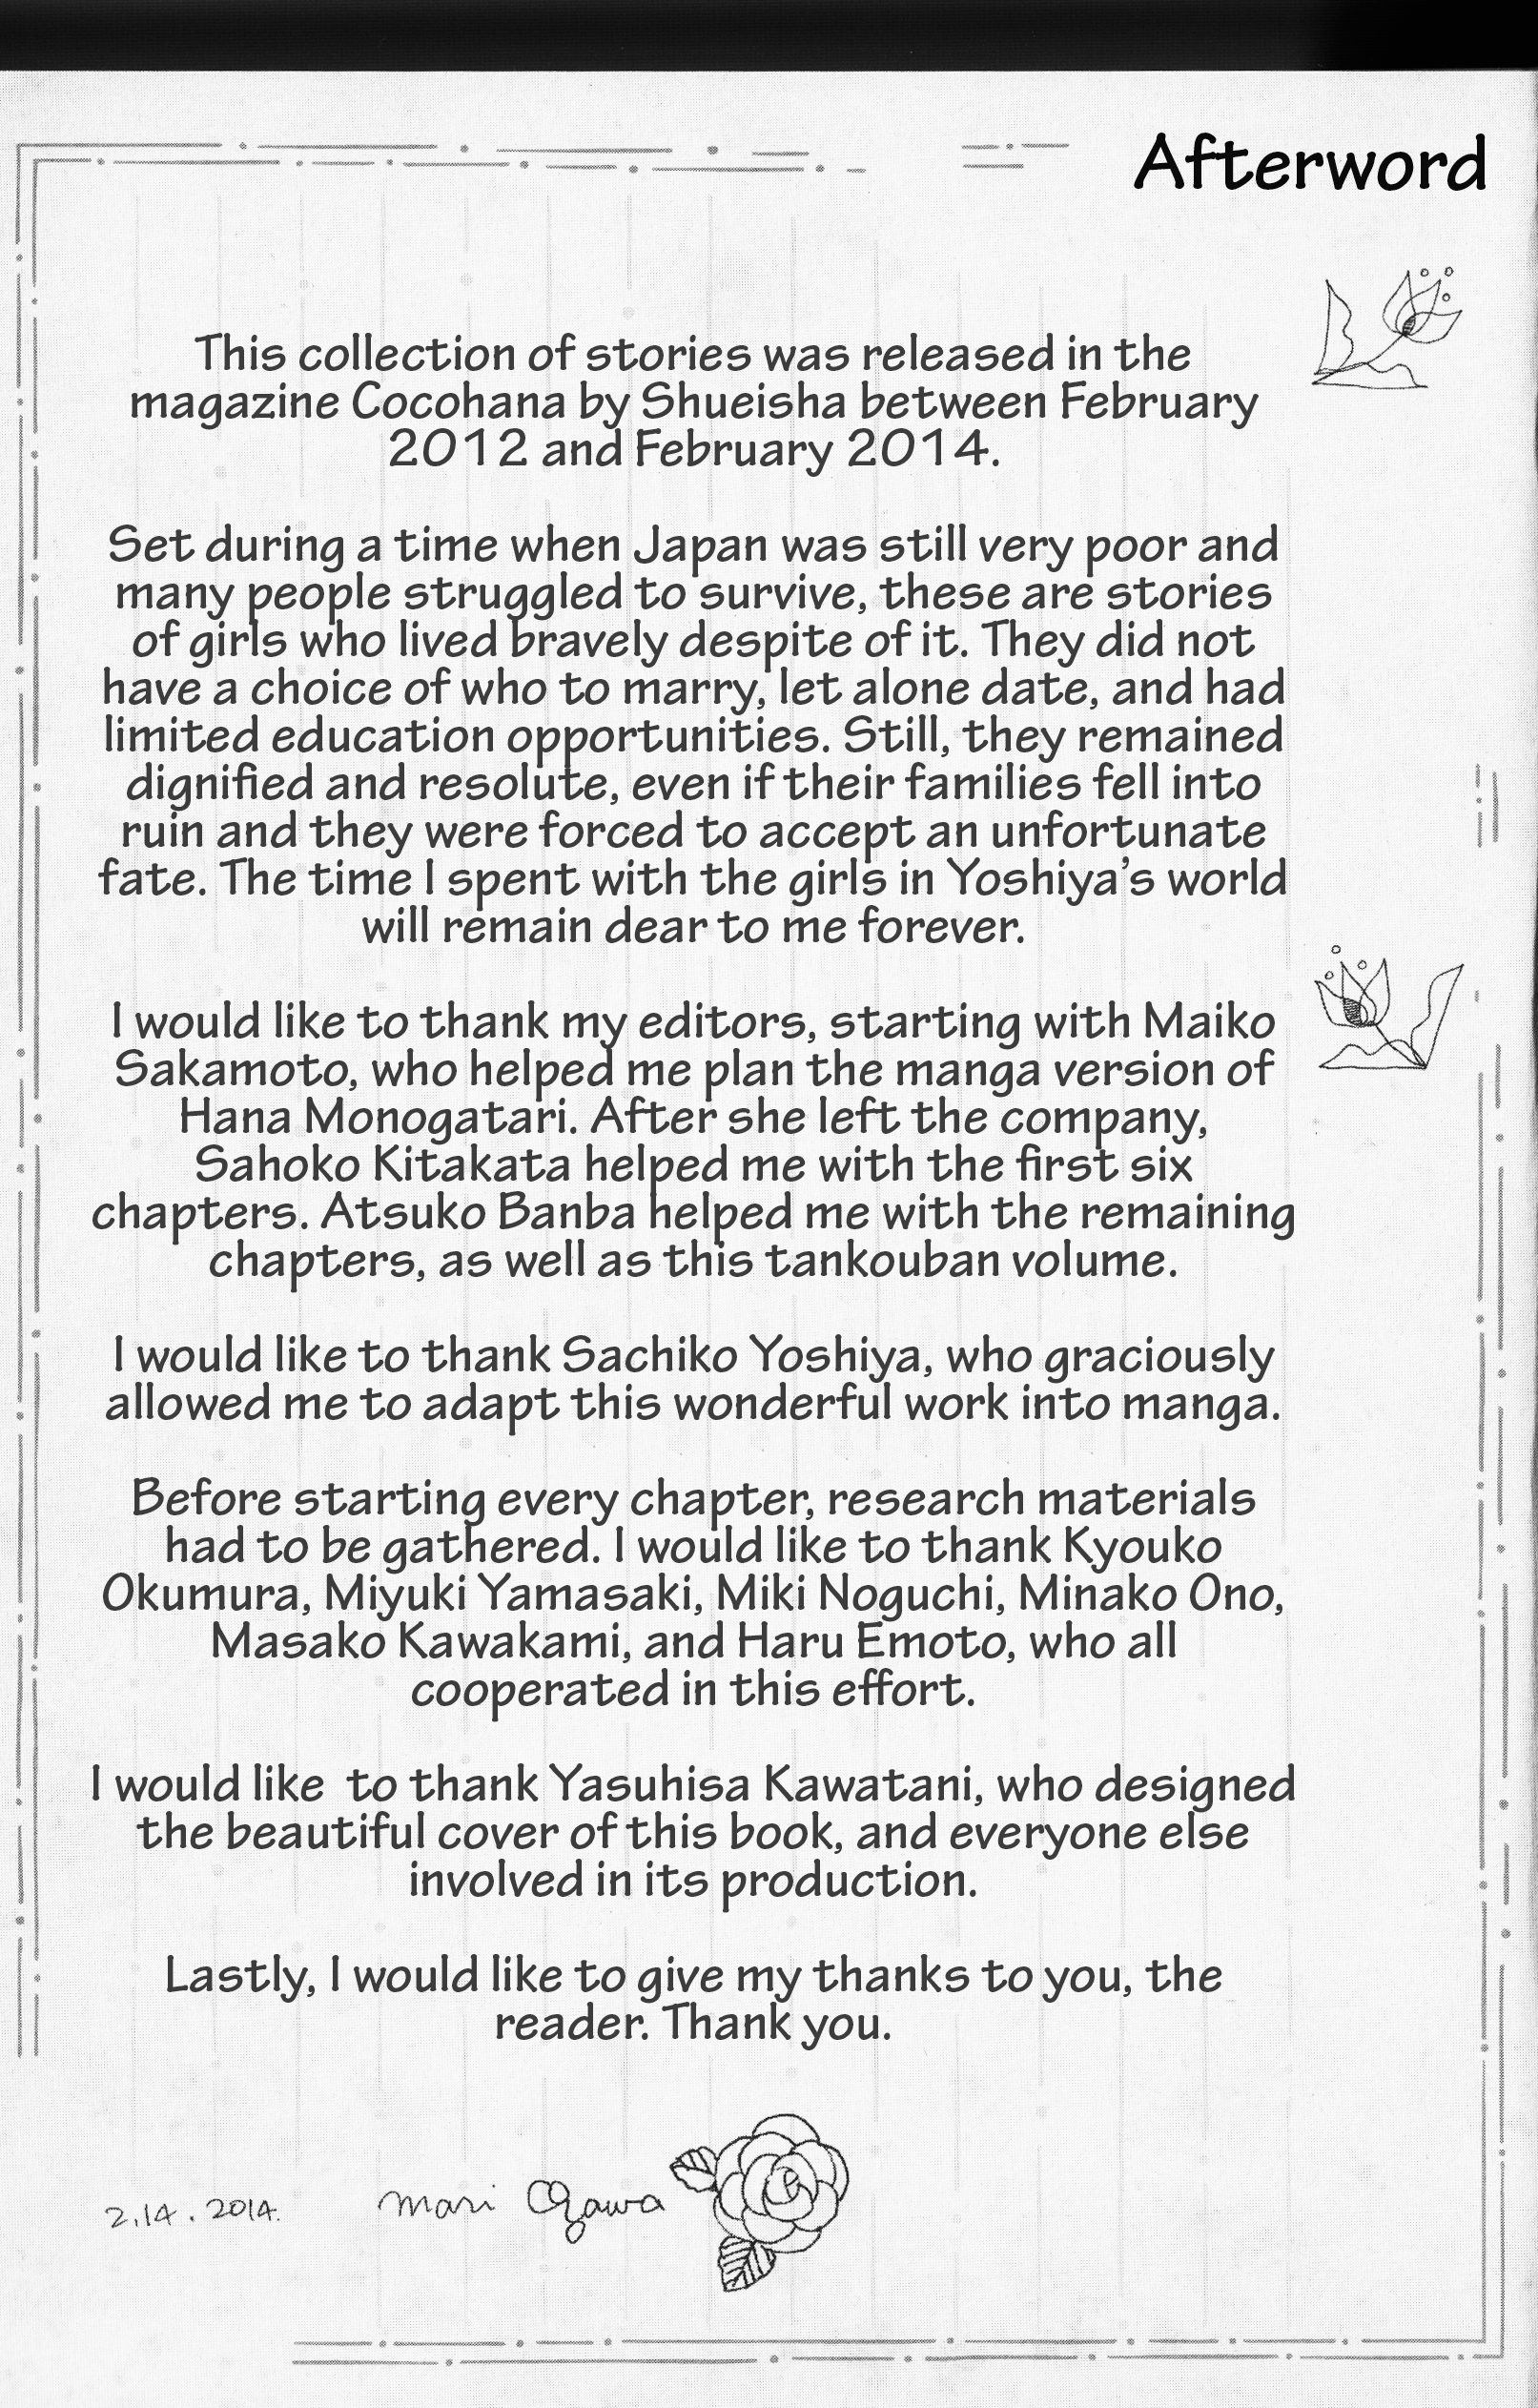 Afterword
This collection of stories was released in the
magazine Cocohana by Shueisha between February
2012 and February 2014.
Set during a time when Japan was still very poor and
many people struggled to survive, these are stories
of girls who lived bravely despite of it. They did not
have a choice of who to marry, let alone date, and had
limited education opportunities. Still, they remained
dignified and resolute, even if their families fell into
ruin and they were forced to accept an unfortunate
fate. The time I spent with the girls in Yoshiya's world
will remain dear to me forever.
I would like to thank my editors, starting with Maiko
Sakamoto, who helped me plan the manga version of
Hana Monogatari. After she left the company,
Sahoko Kitakata helped me with the first six
chapters. Atsuko Banba helped me with the remaining
chapters, as well as this tankouban volume.
I would like to thank Sachiko Yoshiya, who graciously
allowed me to adapt this wonderful work into manga.
Before starting every chapter, research materials
had to be gathered. I would like to thank Kyouko
Okumura, Miyuki Yamasaki, Miki Noguchi, Minako Ono,
Masako Kawakami, and Haru Emoto, who all
cooperated in this effort.
I would like  to thank Yasuhisa Kawatani, who designed
the beautiful cover of this book, and everyone else
involved in its production.
Lastly, I would like to give my thanks to you, the
reader. Thank you.
2.14.2014. Mari Ogawa